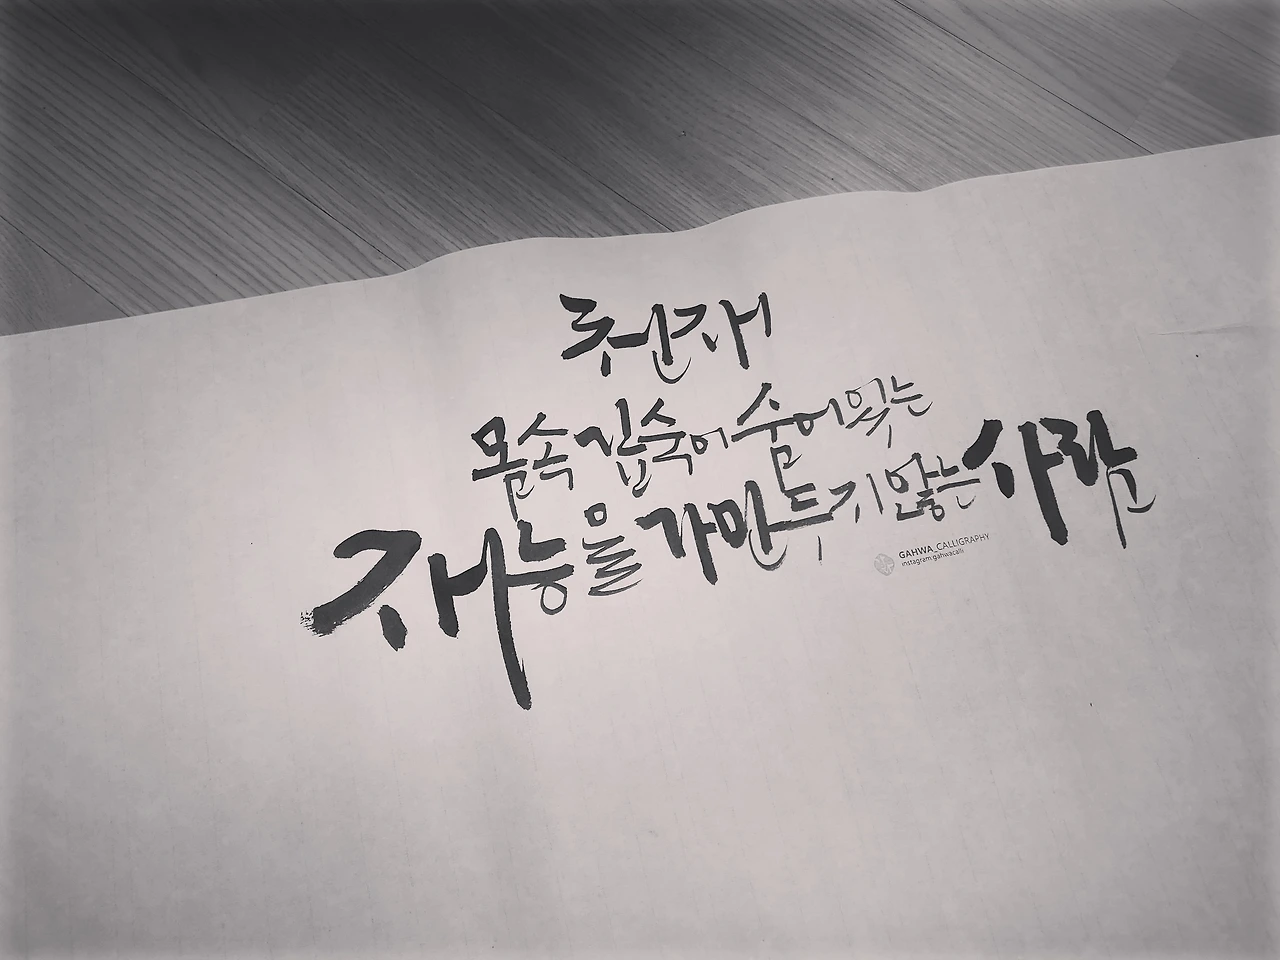 천재
몸속 깊숙이 숨어있는
재능을 가만두지 않는 사람
GAHWA_CALLIGRAPHY
instagram:gahwacalli